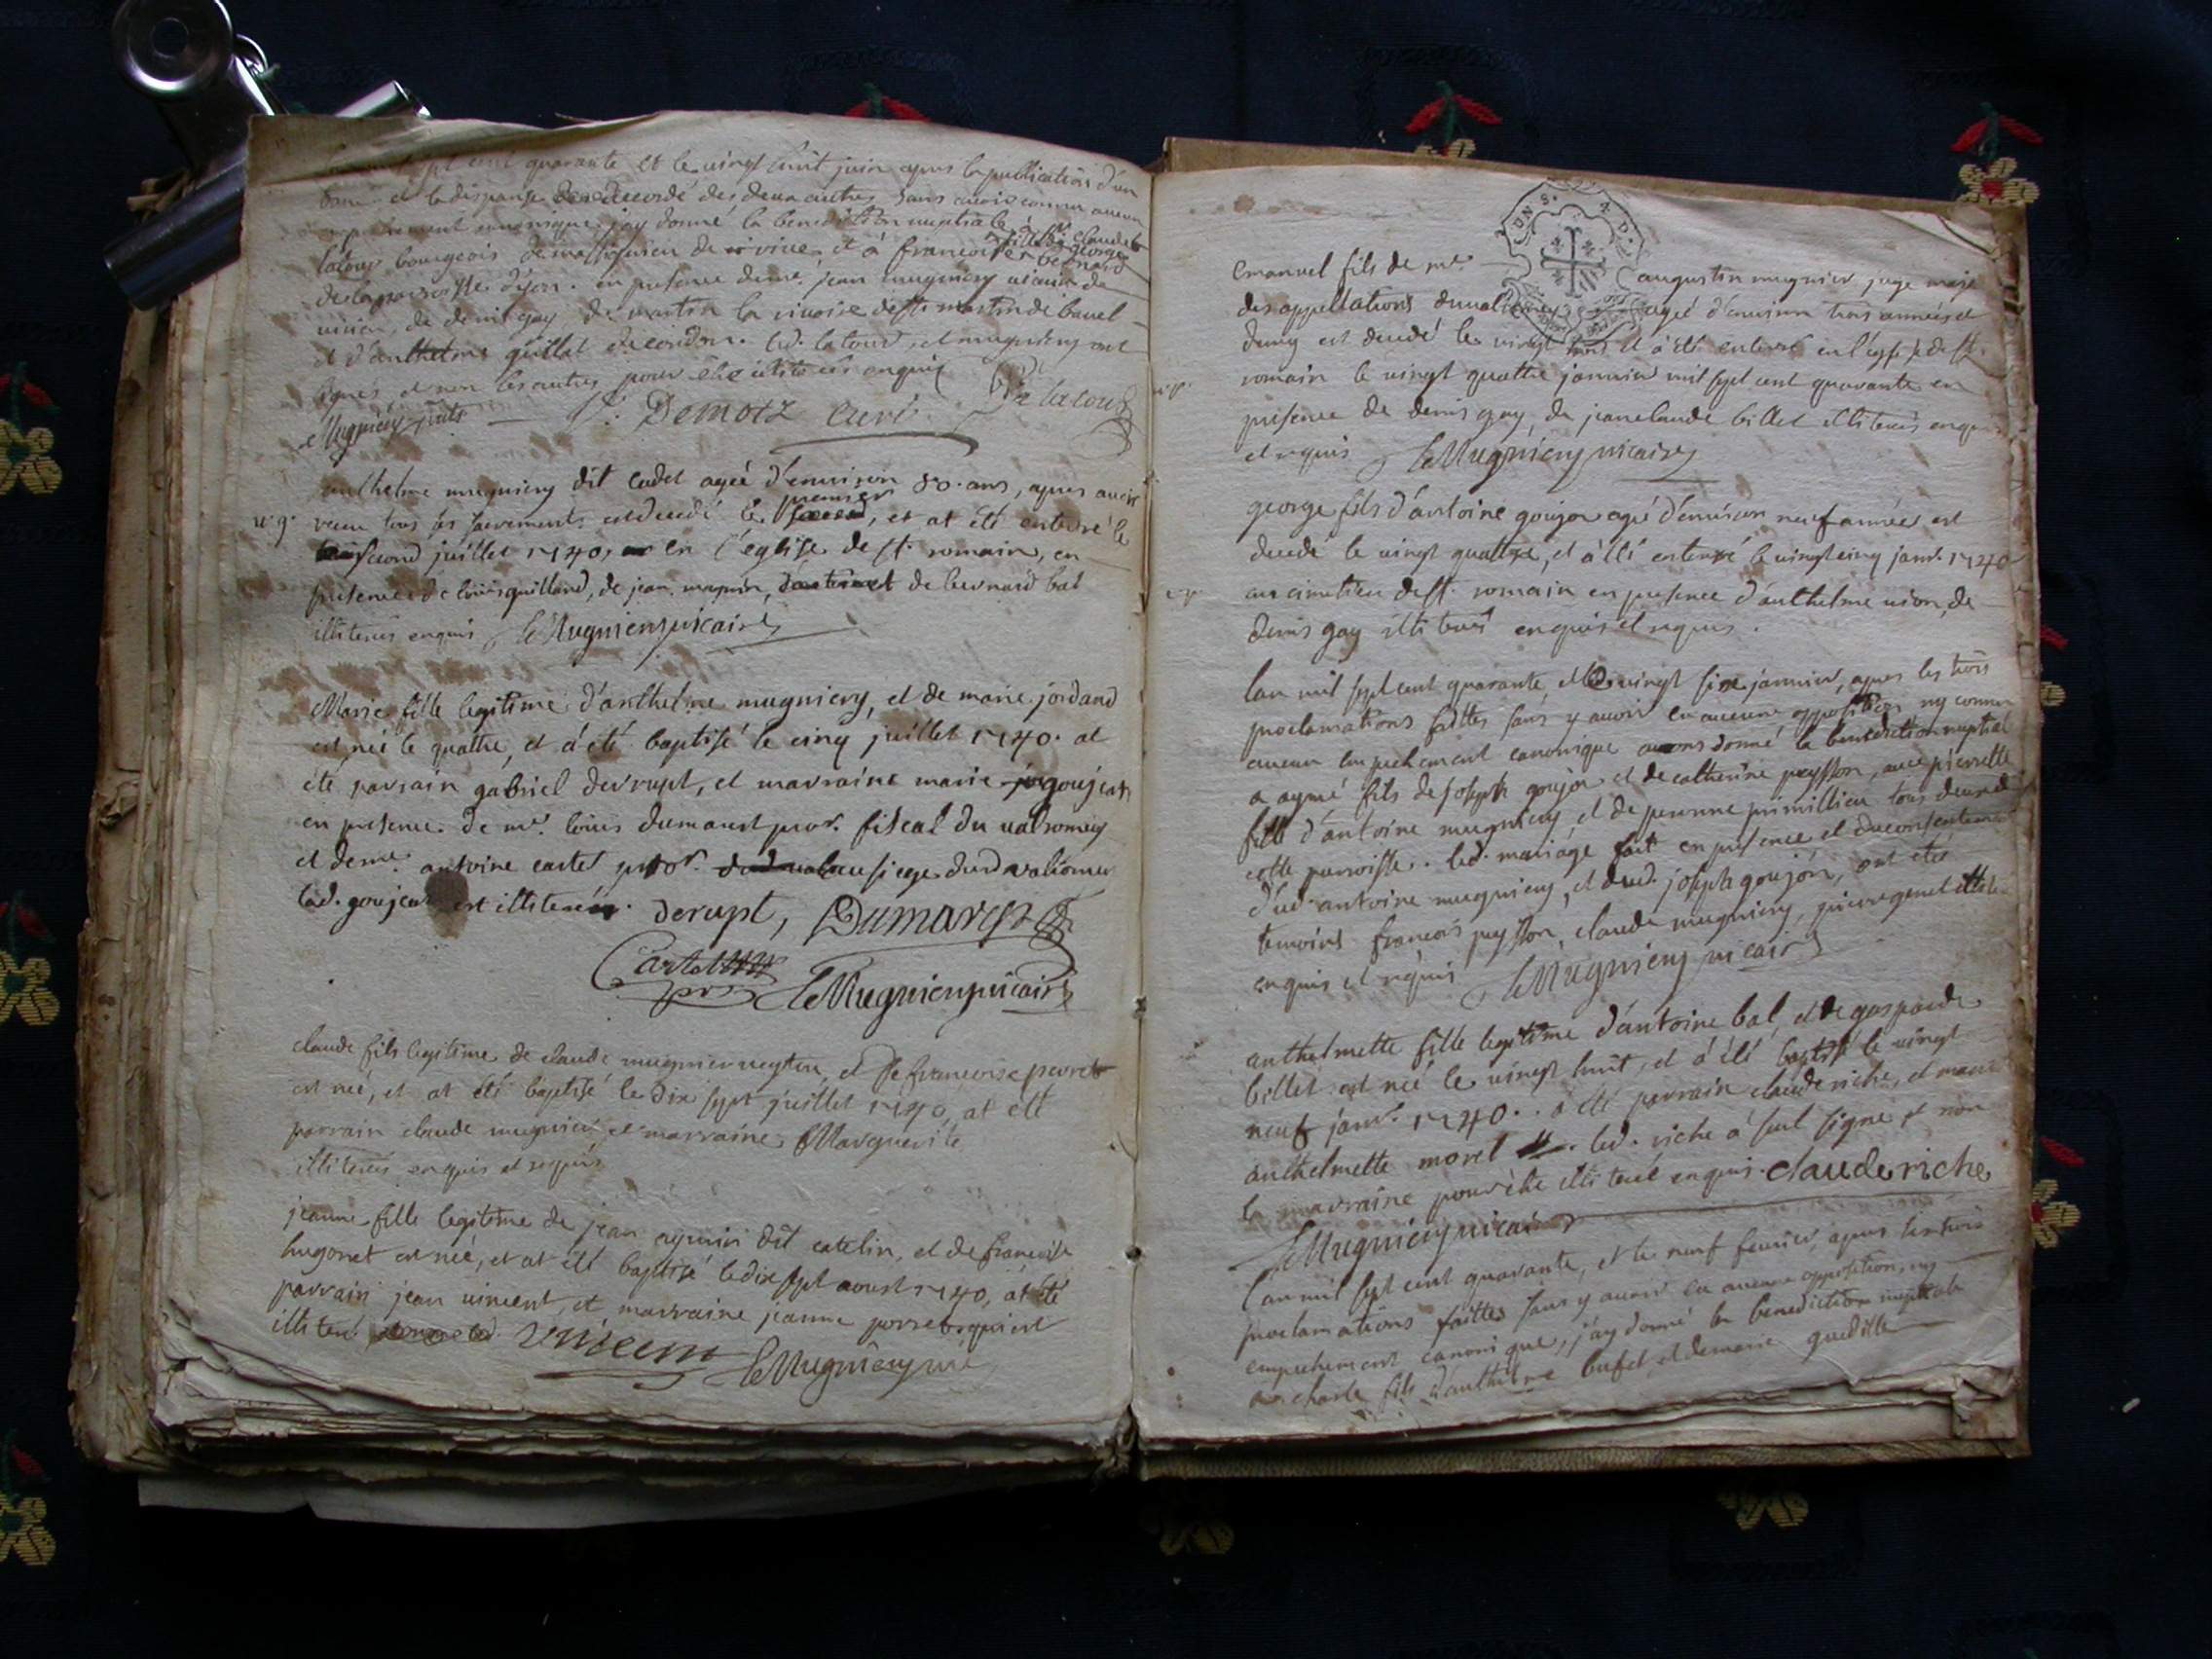 sept cent quarante et le vingt huit juin apres la publication d'un
banc et la dispense accordé des deux autres sans avoir connu aucun
empechement canonique j'ay donné la benediction nuptiale
fille de claude
latour bourgeois de et à françoise george bernard
de la parroisse d'yon. en presence de mr. jean mugniery vicaire de
vivieu, de denis gay de martin la de st. martin de bavel
et d'anthelme guillot de led. latour et mugniery ont
signés et non les autres pour être enquis
Mugniery Demotz curé latour
anthelme mugniery dit cadet agée d'environ 50. ans, apres avoir
receu tous ses sacrements est decedé le premier, et at été enterré le
second juillet 1740, en l'eglise de st. romain, en
presence de louis guilland, de jean magnin, de bernard bal
illiterés enquis Mugniery vicaire
Marie fille legitime d'anthelme mugniery, et de marie jordand
est née le quattre, et a été baptisé le cinq juillet 1740. at
été parrain gabriel derrupt, et marraine marie goujon
en presence de mr. louis dumarest pror. fiscal du valromey
et de mr. antoine cartet au siege dud valromey
lad. goujon est illiterée. derupt, Dumarest
Cartet
Mugniery vicaire
claude fils legitime de claude mugnier et de françoise perret
est né, et at été baptisé le dix sept juillet 1740, at été
parrain claude mugnier et marraine Marguerite
illiterés enquis et requis
jeanne fille legitime de jean aymin dit catelin, et de françoise
hugonet est née, et at été baptisé le dix sept aoust 1740, at été
parrain jean vincent, et marraine jeanne porret qui est
illiteré Vincem Mugniery vic
emanuel fils de mr. augustin mugnier, juge maje
des appellations du valromey agé d'environ trois années et
demy est decedé le vingt trois et a été enterré en l'eglise de st.
romain le vingt quattre janvier mil sept cent quarante en
presence de denis gay, de jean claude billet illiterés enquis
et requis Mugniery vicaire
george fils d'antoine goujon agé d'environ neuf années est
decedé le vingt quattre, et a été enterré le vingt cinq janv. 1740
au cimetiere de st. romain en presence d'anthelme vion, de
denis gay illiterés enquis et requis.
lan mil sept cent quarante, et le vingt six janvier, apres les trois
proclamations faittes sans y avoir eu aucune opposition ny connu
aucun empechement canonique avons donné la benediction nuptial
a aymé fils de joseph goujon et de catherine peysson, avec pierrette
fille d'antoine mugniery et de peronne primillieu tous deux de
cette parroisse. led. mariage fait en presence et du consentement
dud. antoine mugniery, et dud. joseph goujon, ont étés
temoins françois peysson, claude mugniery,
enquis et requis Mugniery vicaire
anthelmette fille legitime d'antoine bal, et de gasparde
billet est née le vingt huit, et a été baptisé le vingt
neuf janv. 1740. a été parrain claude riche, et marr
anthelmette morel led. riche a seul signé et non
la marraine pour être illiteré enquis. claude riche
Mugniery vicaire
lan mil sept cent quarante, et le neuf fevrier, apres les trois
proclamations faittes sans y avoir eu aucune opposition, ny
empechement canonique, j'ay donné la benediction nuptiale
a charle fils d'anthelme bufet, et de marie